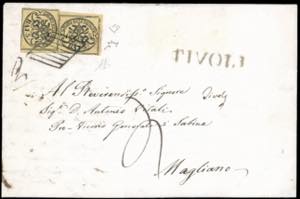 TIVOLI
Al Reverendiss. Signore
Sig. D. Antonio Vitali
Pro-Vicario Generale di Sabina
Magliano